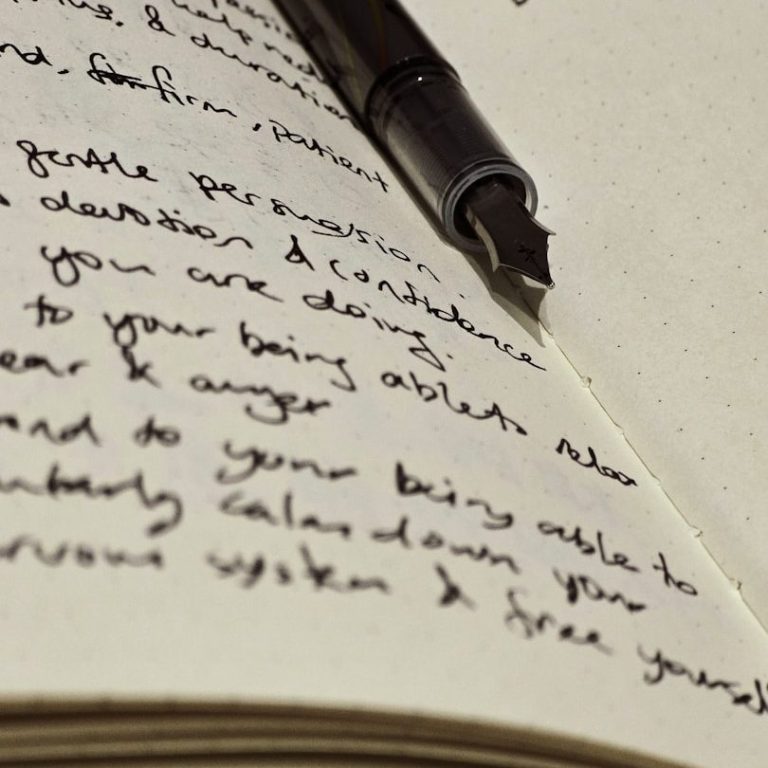 & duration
firm, patient
gentle persuasion.
devotion & confidence
you are doing.
to your being able to relax
& anger
and to your being able to
calm down your
system & free yourself